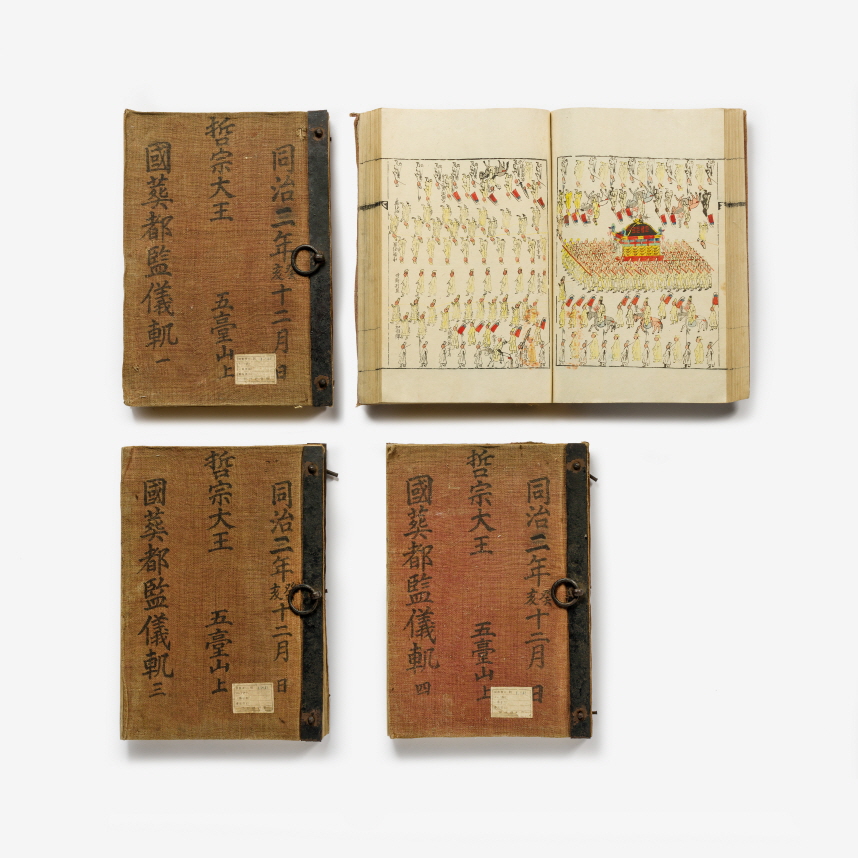 同治二年癸亥十二月 日
哲宗大王 五臺山上
國葬都監儀軌 一
同治二年癸亥十二月 日
哲宗大王 五臺山上
國葬都監儀軌 三
同治二年癸亥十二月 日
哲宗大王 五臺山上
國葬都監儀軌 四